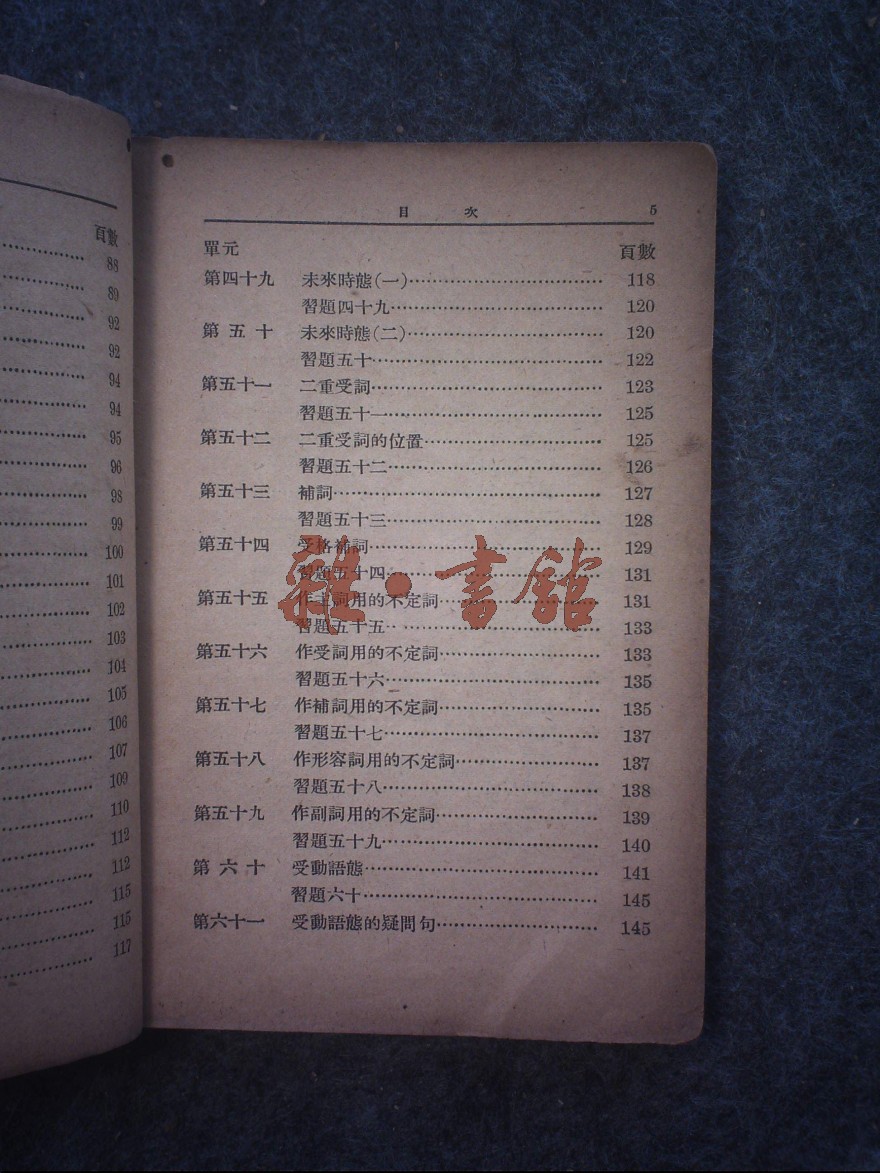 頁數
88
89
92
92
94
94
95
96
98
99
100
101
102
103
104
105
106
107
109
110
112
112
115
115
117
目 次 5
單元 頁數
第四十九 未來時態(一)⋯⋯ 118
習題四十九⋯⋯ 120
第五十 未來時態(二)⋯⋯ 120
習題五十⋯⋯ 122
第五十一 二重受詞⋯⋯ 123
習題五十一⋯⋯ 125
第五十二 二重受詞的位置⋯⋯ 125
習題五十二⋯⋯ 126
第五十三 補詞⋯⋯ 127
習題五十三⋯⋯ 128
第五十四 受格補詞⋯⋯ 129
習題五十四⋯⋯ 131
第五十五 作主詞用的不定詞⋯⋯ 131
習題五十五⋯⋯ 133
第五十六 作受詞用的不定詞⋯⋯ 133
習題五十六⋯⋯ 135
第五十七 作補詞用的不定詞⋯⋯ 135
習題五十七⋯⋯ 137
第五十八 作形容詞用的不定詞⋯⋯ 137
習題五十八⋯⋯ 138
第五十九 作副詞用的不定詞⋯⋯ 139
習題五十九⋯⋯ 140
第六十 受動語態⋯⋯ 141
習題六十⋯⋯ 145
第六十一 受動語態的疑問句⋯⋯ 145
雜·書館